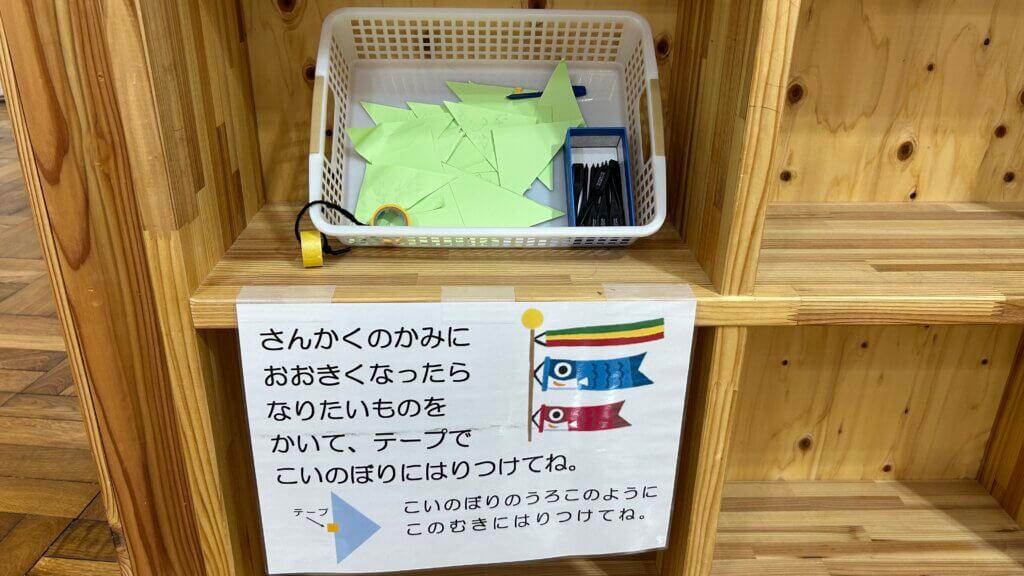 さんかくのかみに
おおきくなったら
なりたいものを
かいて、テープで
こいのぼりにはりつけてね。
テープ
こいのぼりのうろこのように
このむきにはりつけてね。